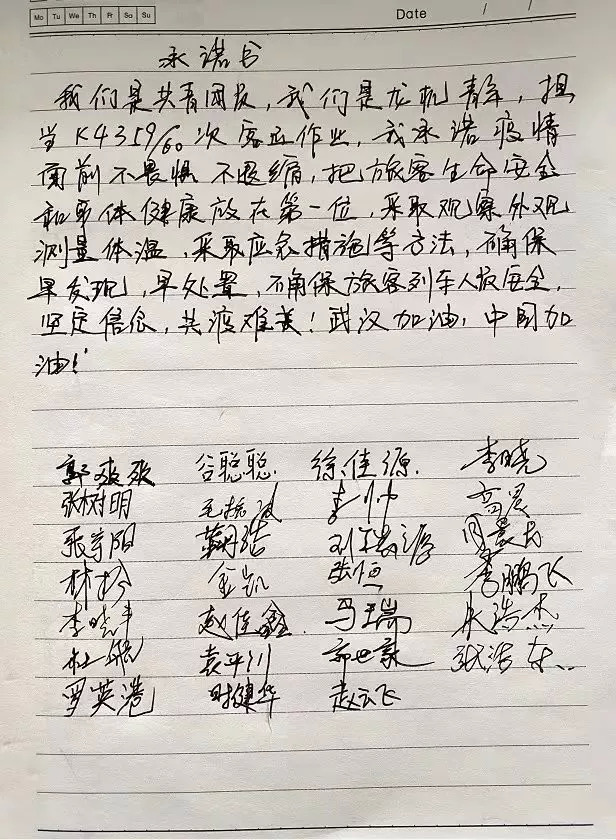 Mo Tu We Th Fr Sa Su
Date / /
承诺书
我们是共青团员，我们是龙机青年，担
当K4359/60次客运作业，我承诺疫情
面前不畏惧 不畏缩，把旅客生命安全
和身体健康放在第一位，采取观察外观
测量体温，采取应急措施等方法，确保
早发现，早处置，确保旅客列车人身安全，
坚定信念，共渡难关！武汉加油，中国加
油！
郭爽爽 谷聪聪 徐佳源 李晓
张树明 李帅 高晨
张宇阳
林松 金凯 张恒 李鹏飞
李晓丰 赵佳鑫 马瑞 朱浩杰
杜航 袁平川 郭世豪 张浩东
罗英港 时健华 赵云飞